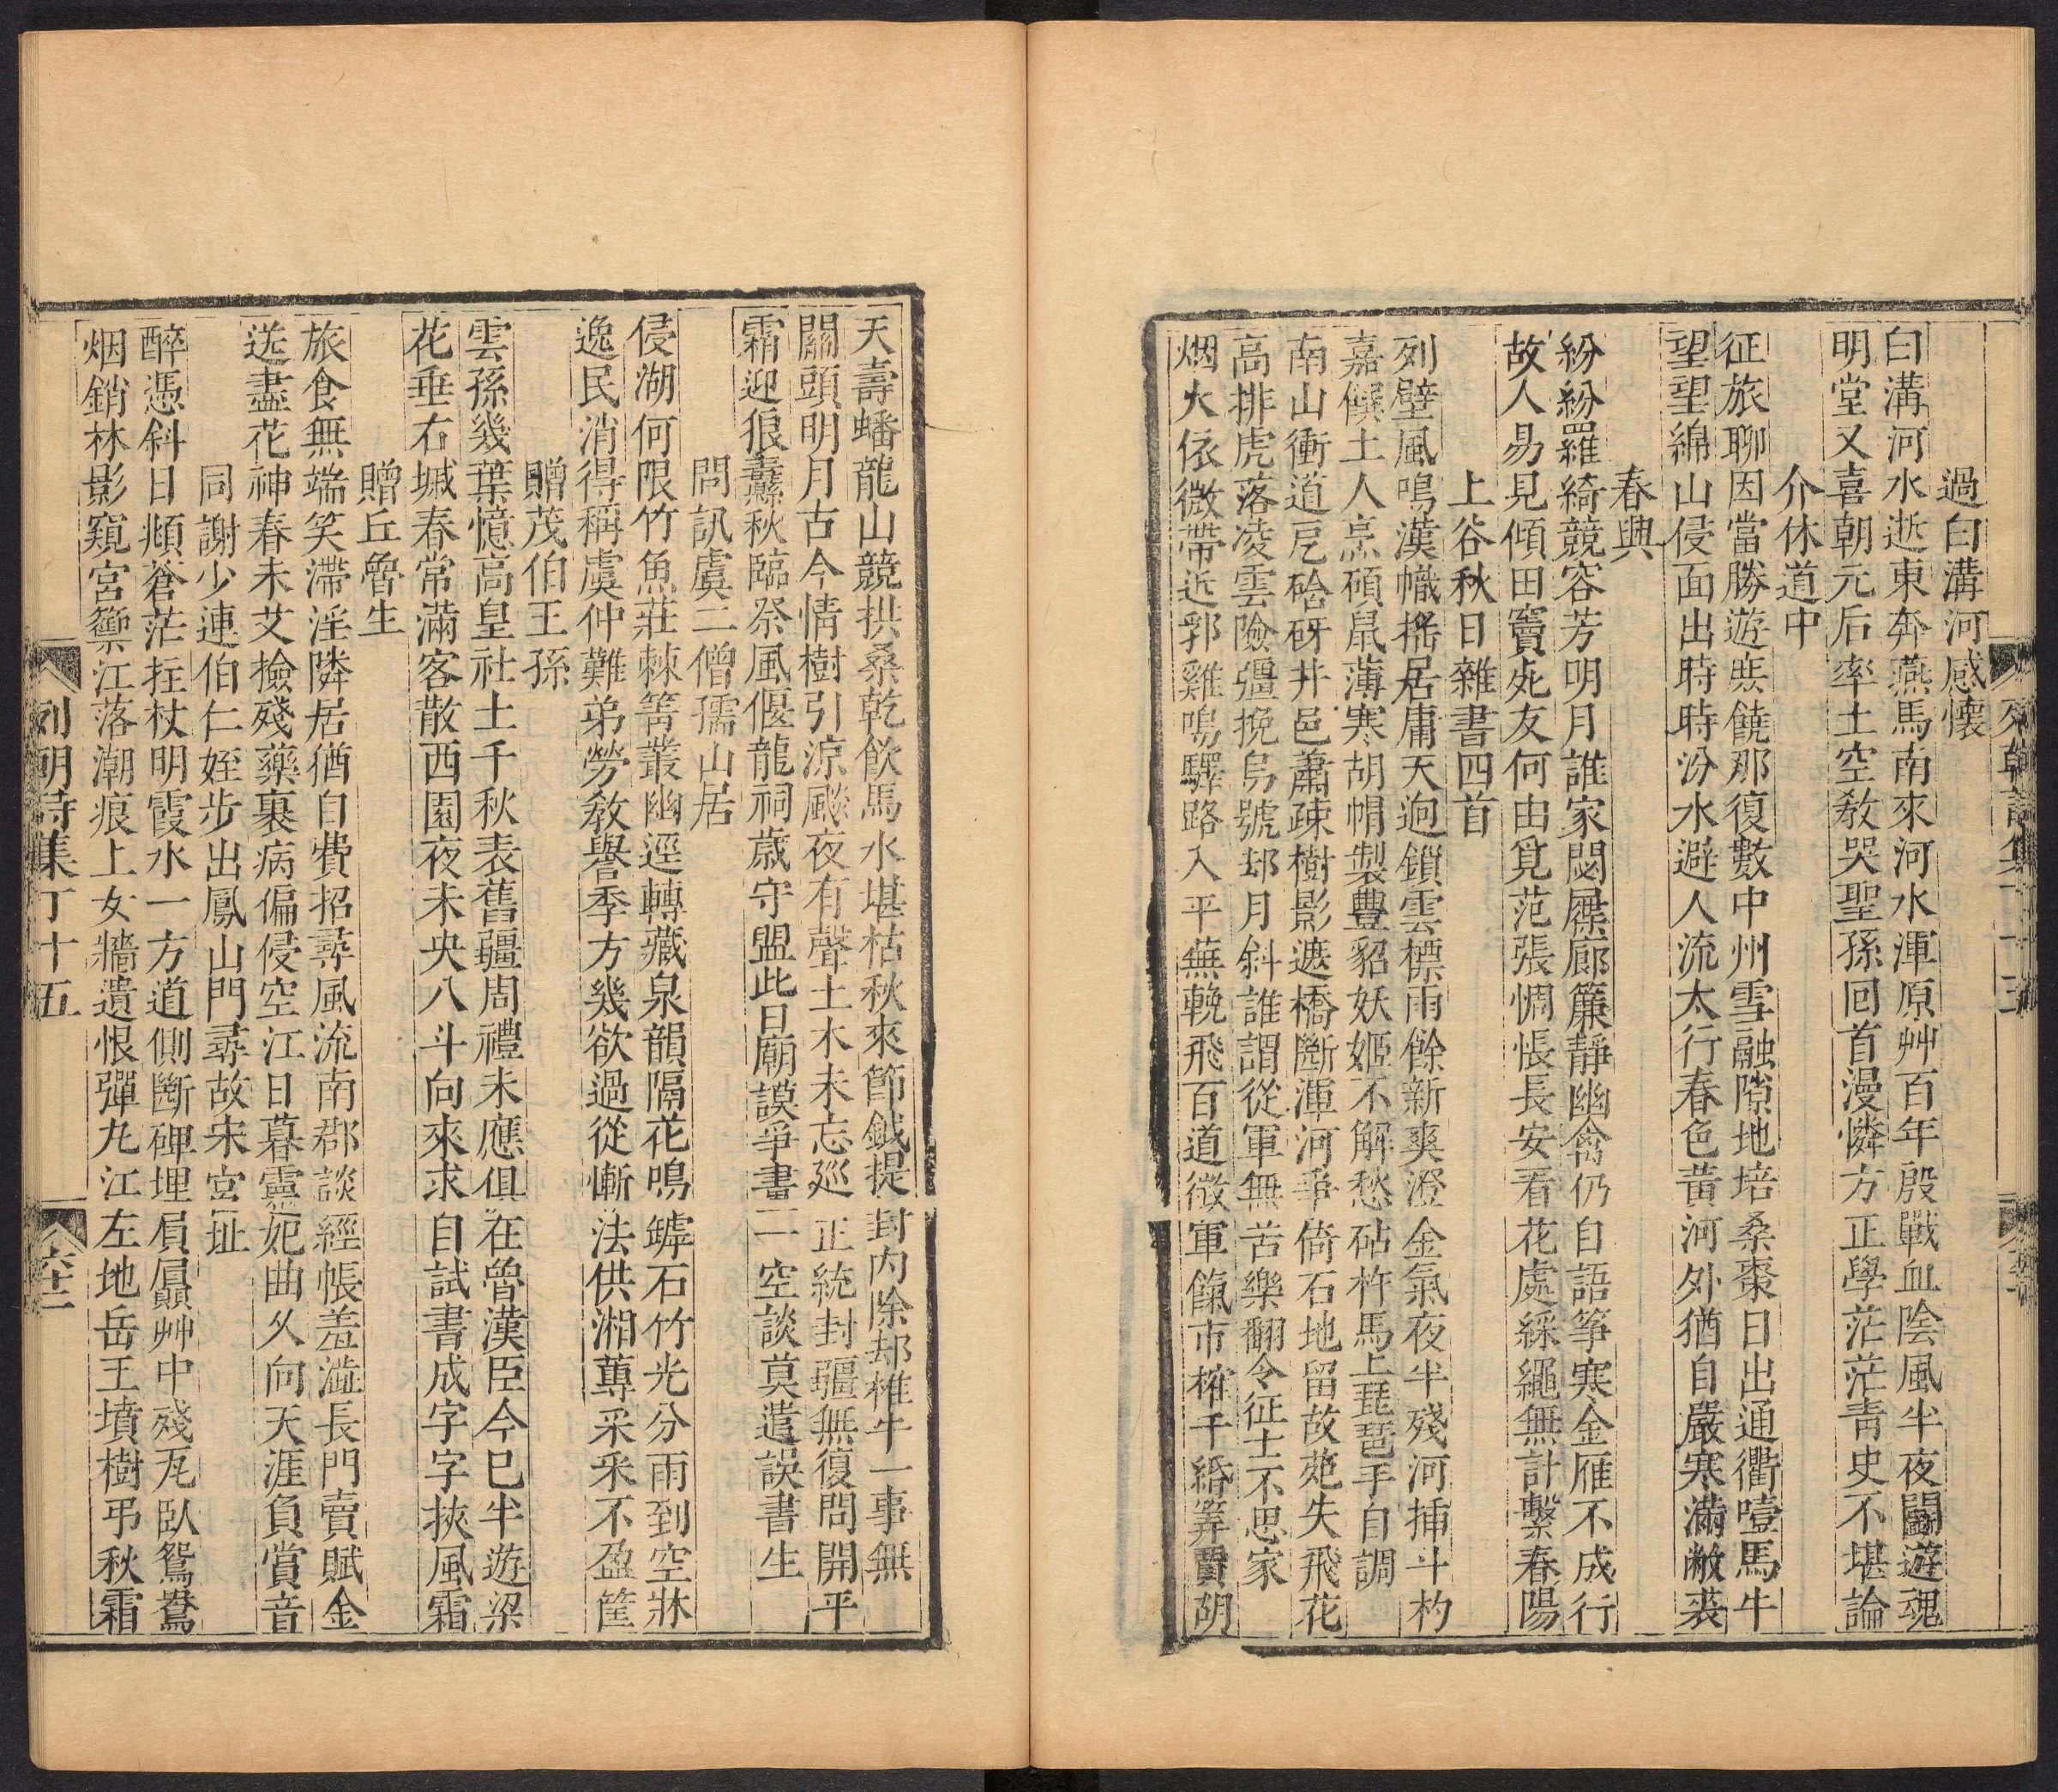 過白溝河感懷
白溝河水逝東奔燕馬南來河水渾原艸百年殷戰血陰風半夜鬬遊魂
明堂又喜朝元后率土空教哭聖孫回首漫憐方正學茫茫青史不堪論
介休道中
征旅聊因當勝遊疾饒那復數中州雪融隙地培桑棗日出通衢噎馬牛
望望綿山侵面出時時汾水避人流太行春色黃河外猶自嚴寒滿敝裘
春興
紛紛羅綺競容芳明月誰家閟屧廊簾靜幽禽仍自語筝寒金雁不成行
故人易見傾田竇死友何由覓范張惆悵長安看花處綵繩無計繫春陽
上谷秋日雜書四首
列壁風鳴漢幟揺居庸天逈鎖雲標雨餘新爽澄金氣夜半殘河揷斗杓
嘉饌土人烹碩鼠薄寒胡帽製豐貂妖姬不解愁砧杵馬上琵琶手自調
南山衝道戹硲砑井邑蕭疎樹影遮橋斷渾河爭倚石地留故苑失飛花
高排虎落凌雲險彊挽烏號却月斜誰謂從軍無苦樂翻令征士不思家
烟火依微帶近郛雞鳴驛路入平蕪輓飛百道微軍餼市榷千緡筭賈胡
天壽蟠龍山競拱桑乾飲馬水堪枯秋來節鉞提封內除却椎牛一事無
關頭明月古今情樹引涼颷夜有聲土木未忘廵正統封疆無復問開平
霜迎狼纛秋臨祭風偃龍祠歲守盟此日廟謨爭畫一空談莫遣誤書生
問訊虞二僧孺山居
侵湖何限竹魚莊棘篱叢幽逕轉藏泉韻隔花鳴罅石竹光分雨到空牀
逸民消得稱虞仲難弟勞教譽季方幾欲過從慚法供湘蓴采采不盈筐
贈茂伯王孫
雲孫幾葉憶高皇社土千秋表舊疆周禮未應俱在魯漢臣今巳半遊梁
花垂右墄春常滿客散西園夜未央八斗向來求自試書成字字挾風霜
贈丘魯生
旅食無端笑滯淫隣居猶自費招尋風流南郡談經帳羞澁長門賣賦金
送盡花神春未艾撿殘藥裹病偏侵空江日暮靈妃曲久向天涯負賞音
同謝少連伯仁姪步出鳳山門尋故宋宮址
醉憑斜日頫蒼茫拄杖明霞水一方道側斷碑埋屓贔艸中殘瓦臥鴛鴦
烟銷林影窺宮籞江落潮痕上女牆遺恨彈丸江左地岳王墳樹弔秋霜
列朝詩集丁十五
六十二